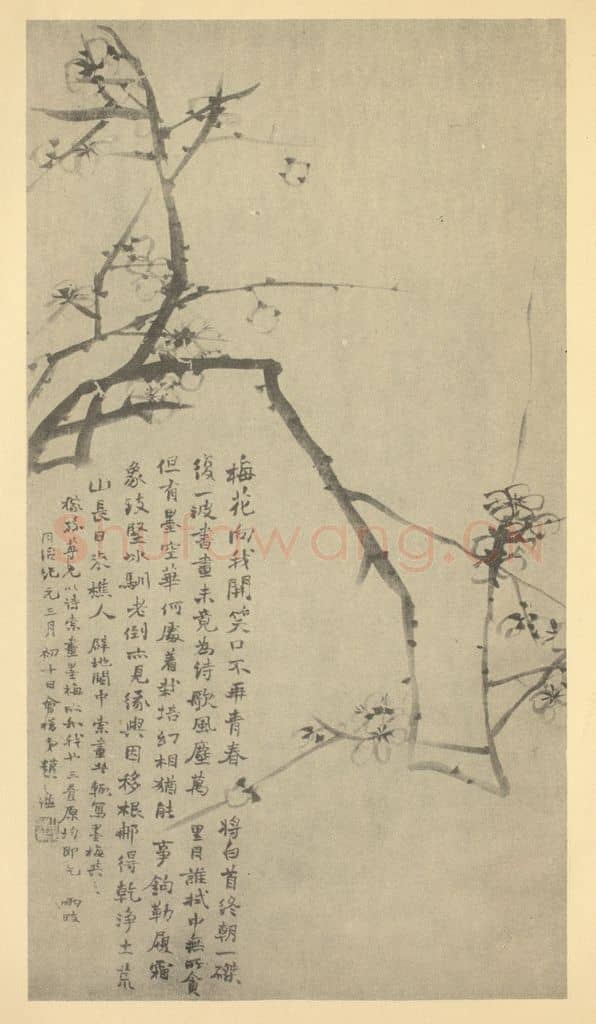 梅花向我開笑口不再青春 將白首終朝一礫
復一波書畫未竟為詩歌風塵萬里月誰拭中無所貪
但有墨空華何處着栽培幻相猶能事鉤勒履霜
象鼓堅冰馴老倒亦見緣興因移根那得乾淨土荒
山長日俗樵人 辟地閩中索畫 輒寫墨梅
尊兄以詩索畫墨梅 三疊原均即 兩政
同治紀元三月初十日會稽弟趙
Shufawang.CN